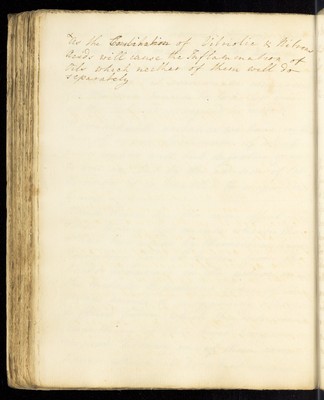 As the Combination of Vitriolic & Nitrous
Acids will cause the Inflammation of
Oils which neither of them will do
separately.